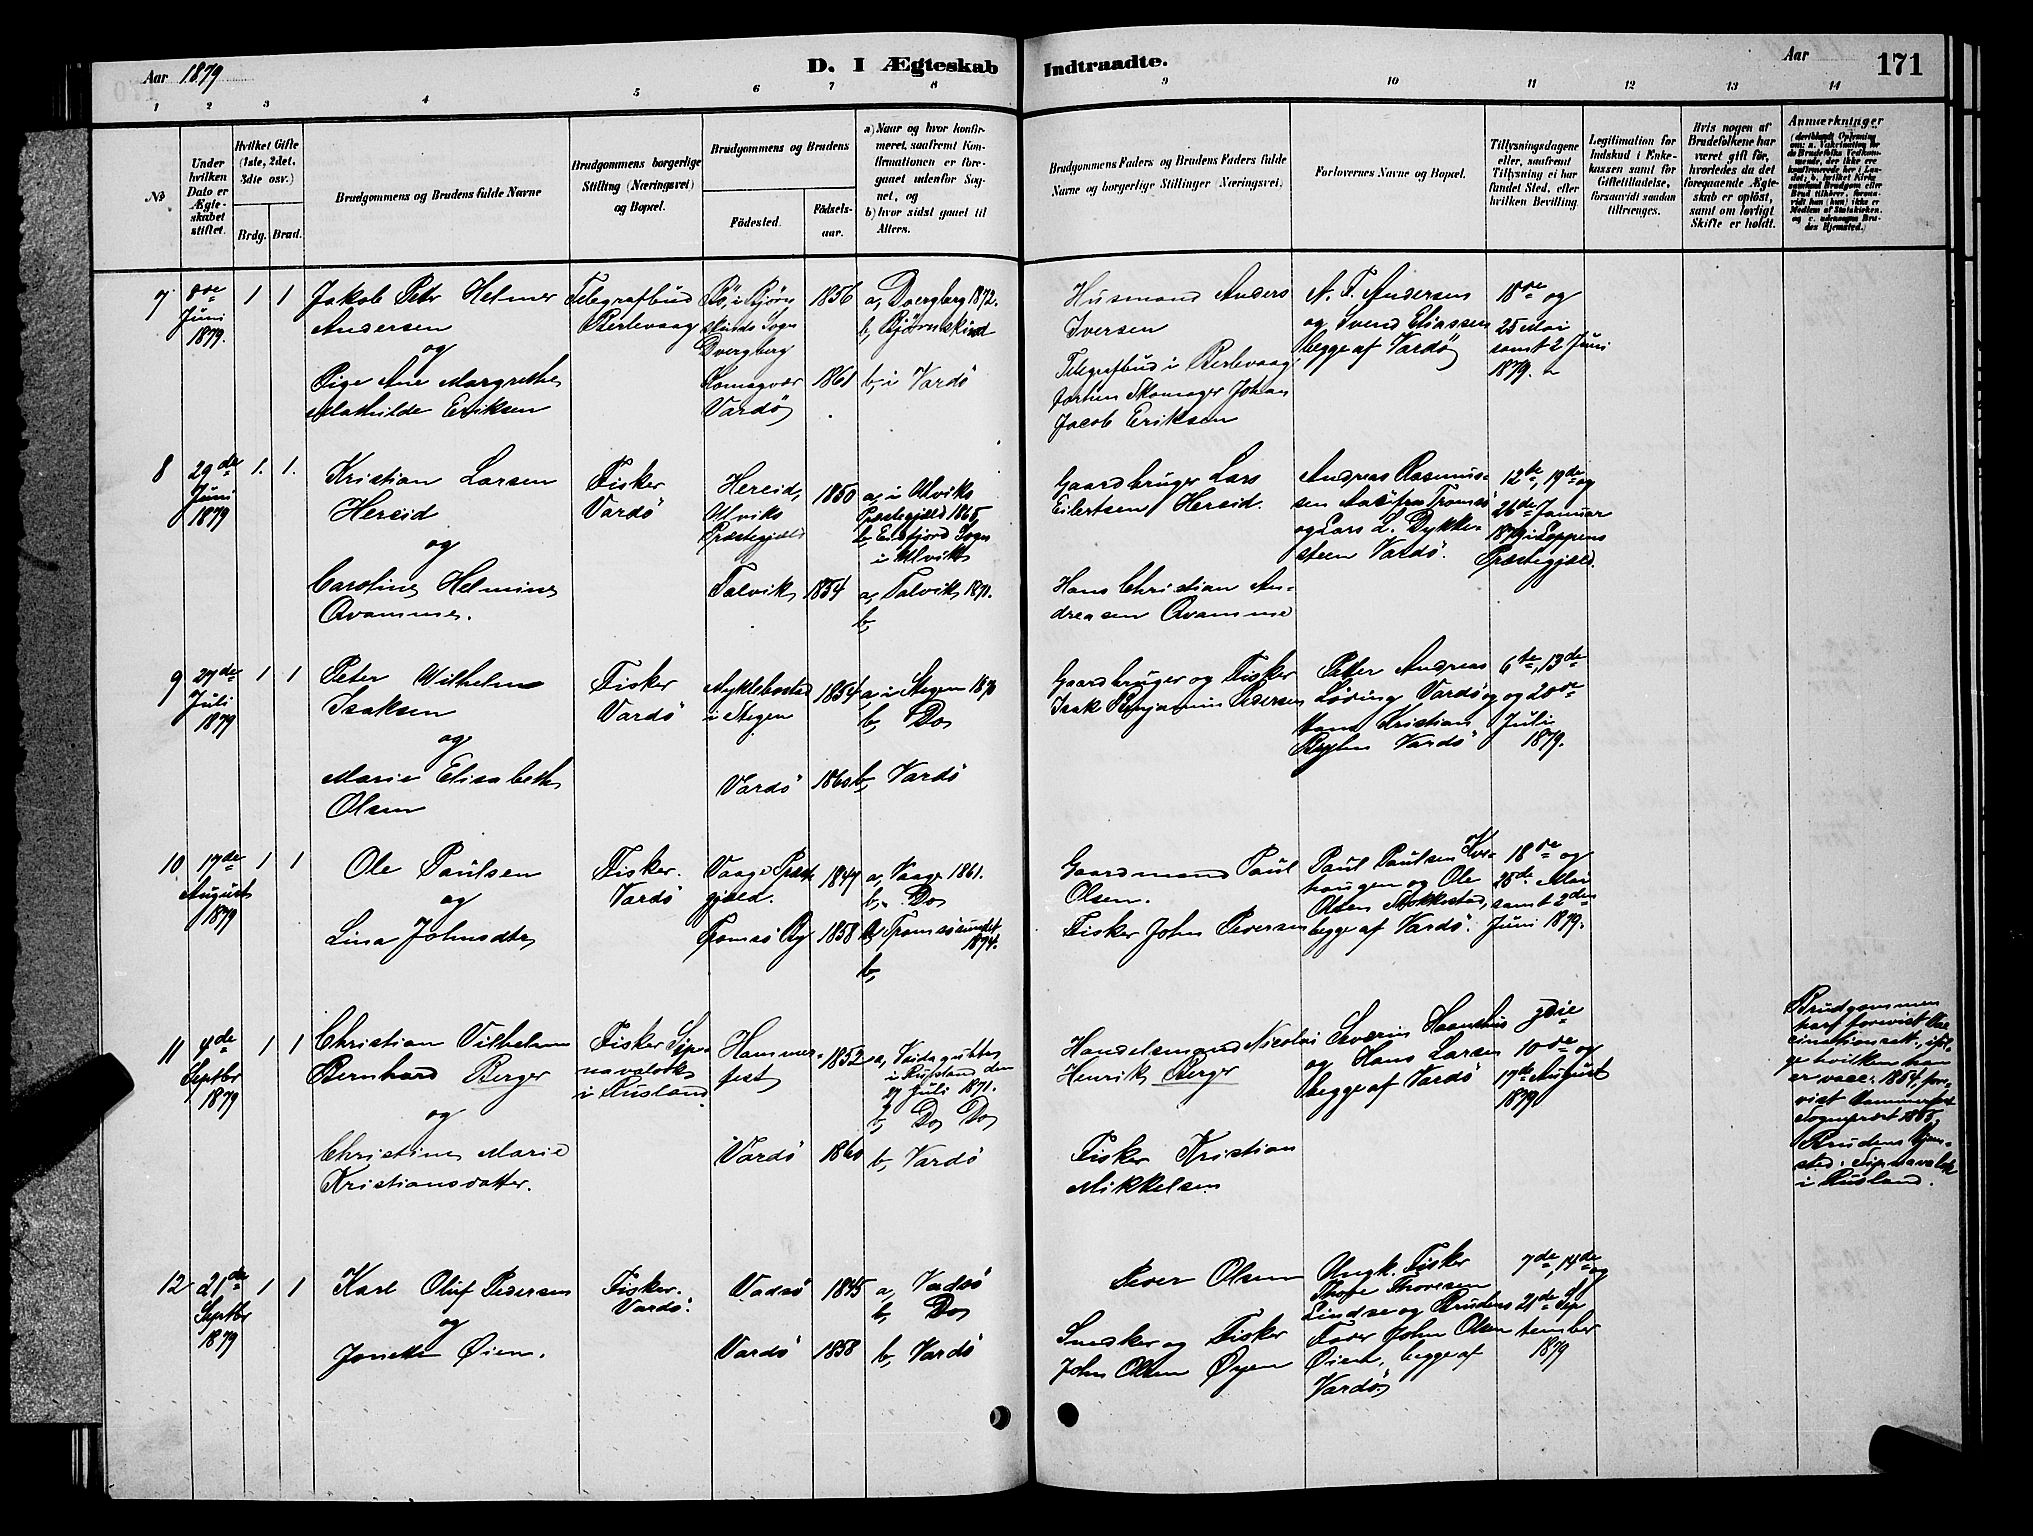 Aar 1879
D. I Ægteskab
Indtraadte.
Aar
171
1 2 3 4 5 6 7 8 9 10 11 12 13 14
No
Under
hvilken
Dato er
Ægte-
skabet
stiftet.
Hvilket Gifte
(1ste, 2det,
3die osv.)
Brdg. Brud.
Brudgommens og Brudens fulde Navne
Brudgommens borgerlige
Stilling (Næringsvei)
og Bopæl.
Brudgommens og Brudens
Fødested.
Fødsels-
aar.
a) Naar og hvor konfir-
meret, saafremt Kon-
firmationen er fore-
gaaet udenfor Sog-
net, og
b) hvor sidst gaaet til
Alters.
Brudgommens Faders og Brudens Faders fulde
Navne og borgerlige Stillinger (Næringsvei.)
Forlovernes Navne og Bopæl.
Tillysningsdagene
eller, saafremt
Tillysning ei har
fundet Sted, efter
hvilken Bevilling.
Legitimation for
Indskud i Enke-
kassen samt for
Giftetilladelse,
forsaavidt saadan
tiltrænges.
Hvis nogen af
Brudefolkene har
været gift før,
hvorledes da det
foregaaende Ægte-
skab er opløst,
samt om lovligt
Skifte er holdt.
Anmærkninger
7
8de
Juni
1879.
1 1
Jakob Petr Helmer
Andersen
og
Pige Ane Margrethe
Mathilde Eriksen
Telegrafbud
Berlevaag
Bö, i Bjørn
skinds Sogn
Dvergberg
1856
a, Dvergberg 1872.
b, Bjørnskind
Komagvær
Vardö
1861
b, i Vardö
Husmand Anders
Iversen
Telegrafbud i Berlevaag
forhen Skomager Johan
Jacob Eriksen
A. F. Andersen
og Svend Eliassen
begge af Vardö
18de og
25 Mai
samt 2 Juni
1879.
8
29de
Juni
1879
1. 1.
Kristian Larsen
Hereid
og
Caroline Helmine
Qvamme.
Fisker
Vardö
Hereid,
Ulviks
Præstegjæld
1850
a, i Ulviks
Præstegjæld 1865
b, Eidfjord Sogn
i Ulvik
Talvik
1854
a, Talvik 1871.
b,
Gaardbruger Lars
Eilertsen Hereid.
Hans Christian An-
dreasen Qvamme
Andreas Rasmus-
sen fra Tromsö
og Lars L. Dykke-
steen Vardö.
12te, 19de og
26de Januar
1879 i Loppens
Præstegjæld.
9
27de
Juli
1879
1 1
Peter Wilhelm
Isaksen
og
Marie Elisabeth
Olsen
Fisker
Vardö
Myklebostad
i Stegen
1854
a, i Stegen 1870
b, Do
Vardö
1860
b, Vardö
Gaardbruger og Fisker
Isak Benjamin Pedersen
Petter Andreas
Löding Vardö og
Hans Kristian
Vardö
6te, 13de
og 20de
Juli
1879.
10
17de
August
1879
1 1
Ole Paulsen
og
Lina Johnsdtr
Fisker.
Vardö
Vaage Præste
gjæld.
1847
a, Vaage 1861.
b, Do
Tromsö By
1858
a, Tromsösundet
1874.
b,
Gaardmand Paul
Olsen.
Fisker John Peversen
Paul Paulsen Kver-
haugen og Ole
Olsen Stokkestad,
begge af Vardö.
18de og
25de Mai
samt 2den
Juni 1879.
11
4de
Septbr
1879
1 1
Christian Vilhelm
Bernhard Berger
og
Christine Marie
Kristiansdatter.
Fisker Sip-
navalok
i Rusland
Hammer-
fest
1852
a, Vaidagubbe
i Rusland den
Juli 1871.
b, Do Do
Vardö
1860
b, Vardö
Handelsmand Nicolai
Henrik Berger
Fisker Kristian
Mikkelsen
Severin Haanshus
og Hans Larsen
begge af Vardö
3die
10de og
17de August
1879
Brudgommen
har forevist Vac
cinationsatt., iföl-
ge hvilken han
er vacc: 1854,
vist Hammerfest
Sogneprest
Brudens Hjem-
sted: Sipnavalok
i Rusland.
12
21de
Septbr
1879
1 1
Karl Oluf Pedersen
og
Jonette Øien.
Fisker.
Vardö.
Vadsö
1845
a, Vadsö
b, Do
Vardö
1858
b, Vardö
Peder Olsen
Snedker og Fisker
John Olsen Øyen
Ungk. Fisker
Thore Thoresen
Lindse og Brudens
Fader John Olsen
Øien, begge af
Vardö
7de, 14de og
21de Sep
tember
1879